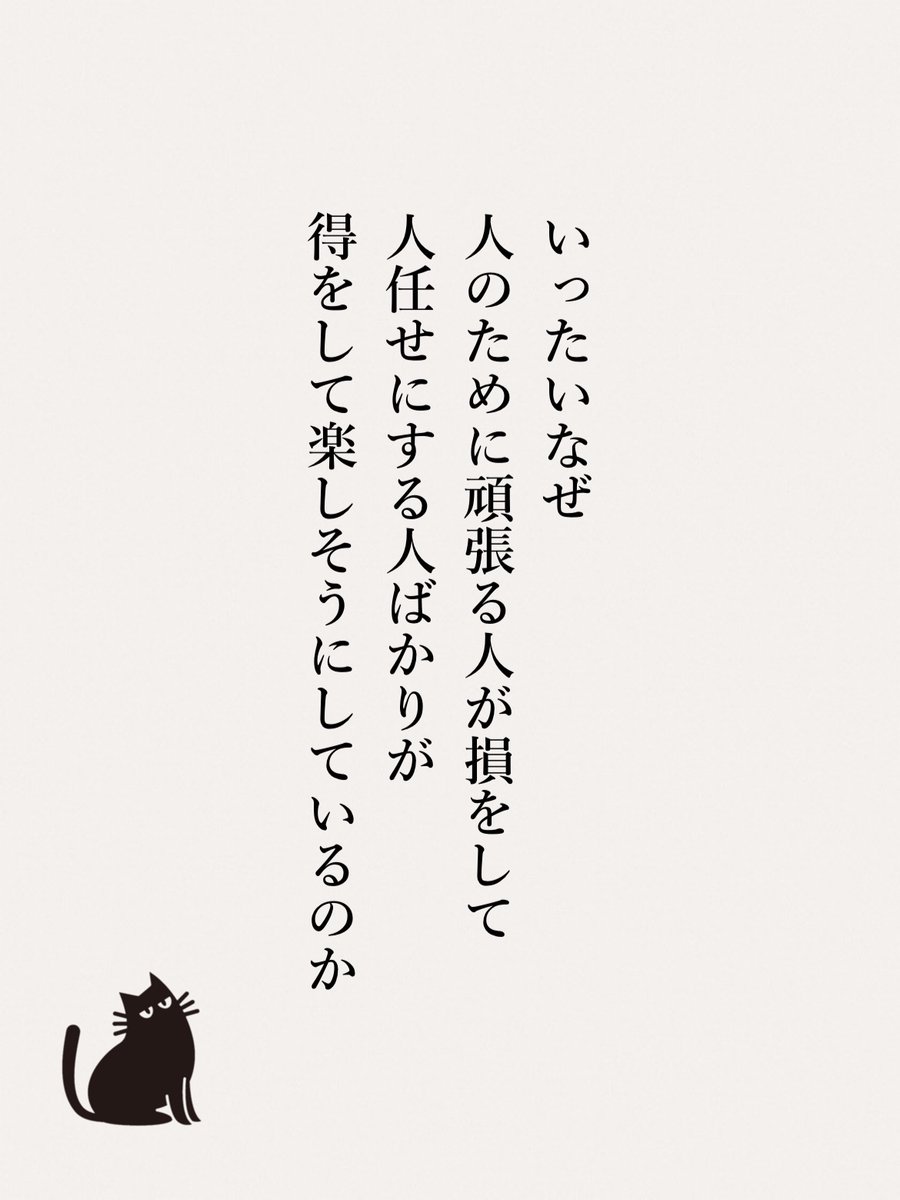 いったいなぜ
人のために頑張る人が損をして
人任せにする人ばかりが
得をして楽しそうにしているのか